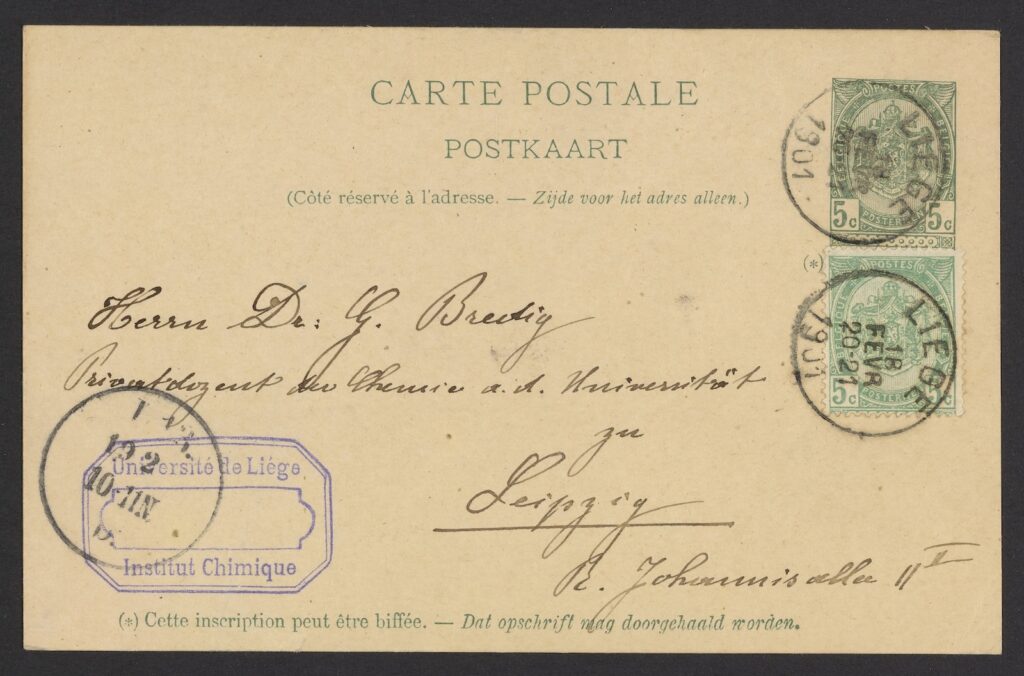 CARTE POSTALE
POSTKAART
(Côté réservé à l'adresse. — Zijde voor het adres alleen.)
POSTES
5c 5c
LIEGE
1901
(*)
POSTES
5c 5c
LIEGE
18
FEVR
20-21
1901
Herrn Dr: G. Bredig
Privatdozent der Chemie a. d. Universität
zu
Leipzig
R. Johannisallee 11 I
19 2
10-11N
Université de Liége
Institut Chimique
(*) Cette inscription peut être biffée. — Dat opschrift mag doorgehaald worden.